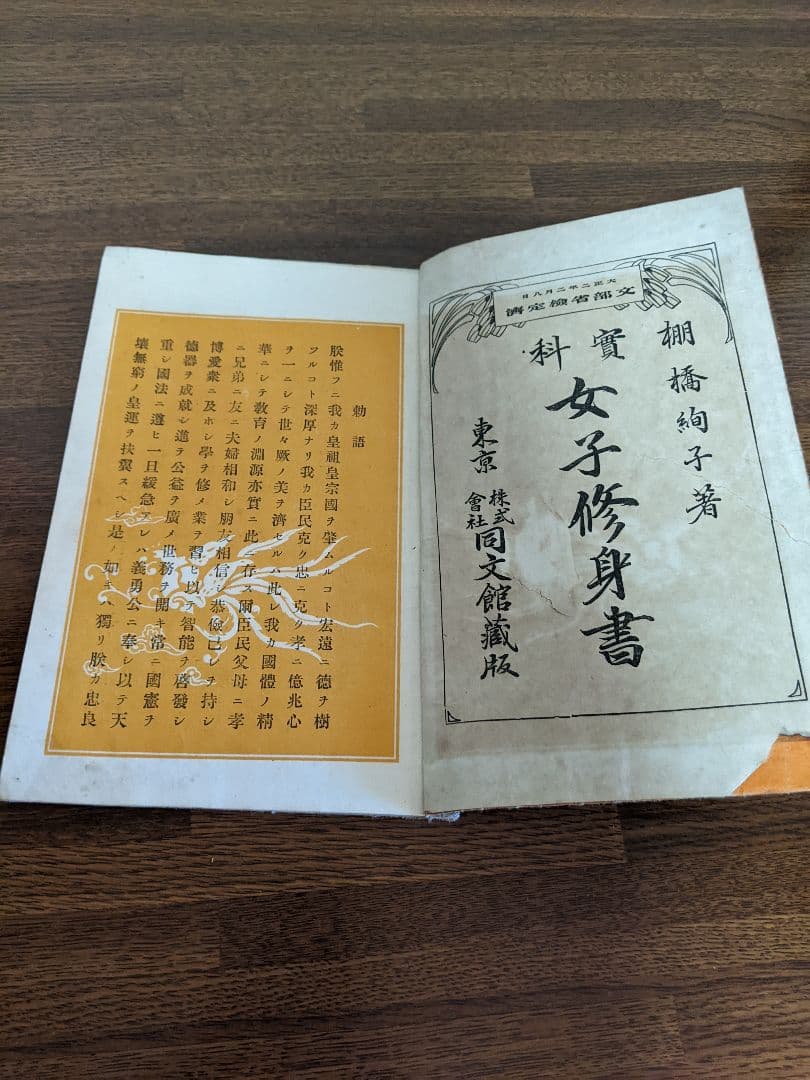 大正二年二月八日
文部省檢定濟
棚橋絢子著
實科
女子修身書
東京
株式會社
同文館藏版
勅語
朕惟フニ我カ皇祖皇宗國ヲ肇ムルコト宏遠ニ德ヲ樹
ツルコト深厚ナリ我カ臣民克ク忠ニ克ク孝ニ億兆心
ヲ一ニシテ世々厥ノ美ヲ濟セルハ此レ我カ國體ノ精
華ニシテ敎育ノ淵源亦實ニ此ニ存ス爾臣民父母ニ孝
ニ兄弟ニ友ニ夫婦相和シ朋友相信シ恭儉己レヲ持シ
博愛衆ニ及ホシ學ヲ修メ業ヲ習ヒ以テ智能ヲ啓發シ
德器ヲ成就シ進テ公益ヲ廣メ世務ヲ開キ常ニ國憲ヲ
重シ國法ニ遵ヒ一旦緩急アレハ義勇公ニ奉シ以テ天
壤無窮ノ皇運ヲ扶翼スヘシ是ノ如キハ獨リ朕カ忠良